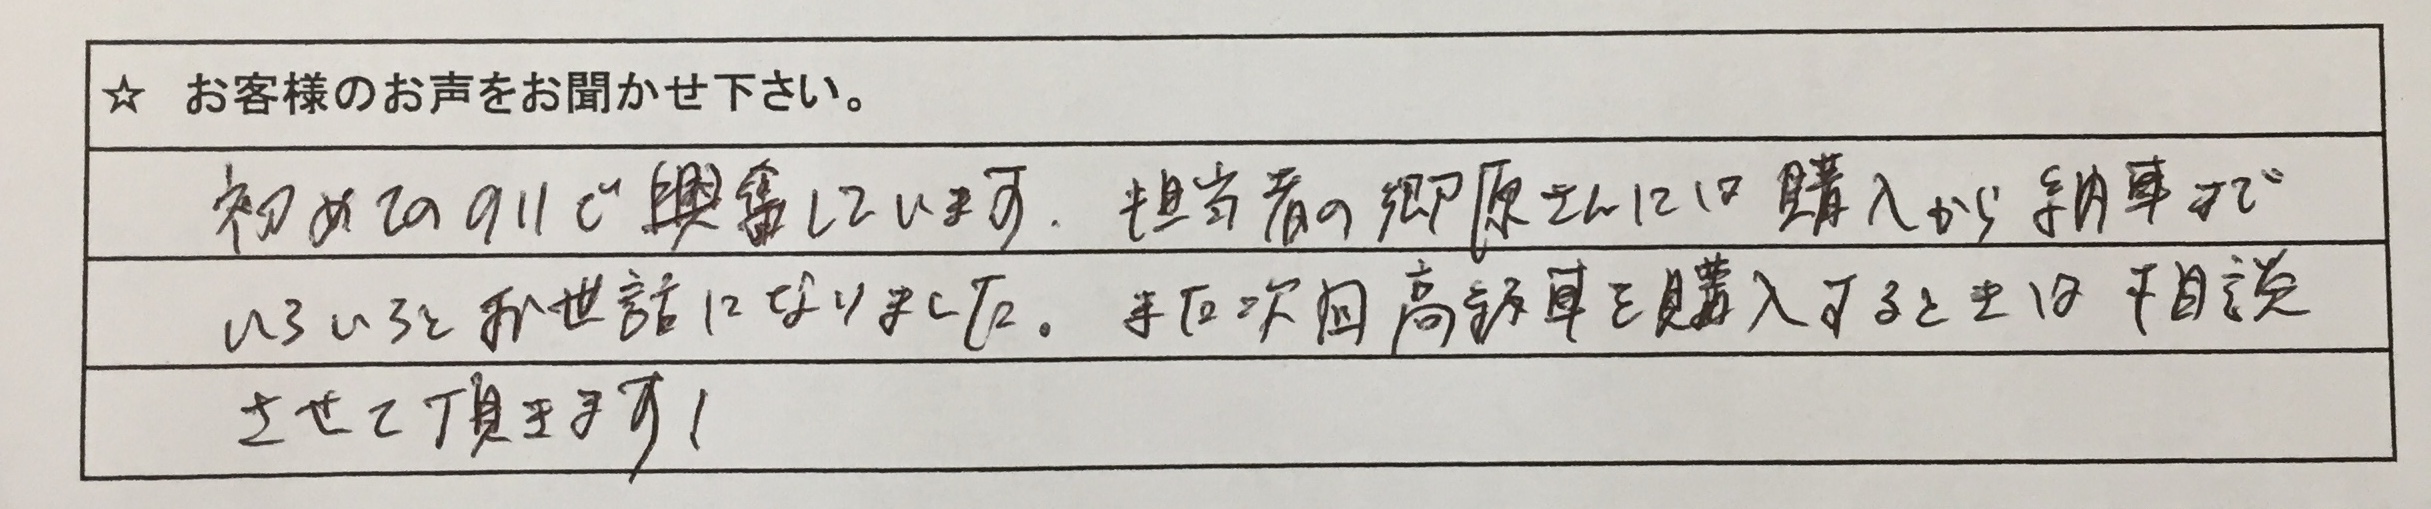 ☆ お客様のお声をお聞かせ下さい。
初めての911で興奮しています. 担当者の郷原さんには購入から納車まで
いろいろとお世話になりました。また次回高額車を購入するときは相談
させて頂きます!